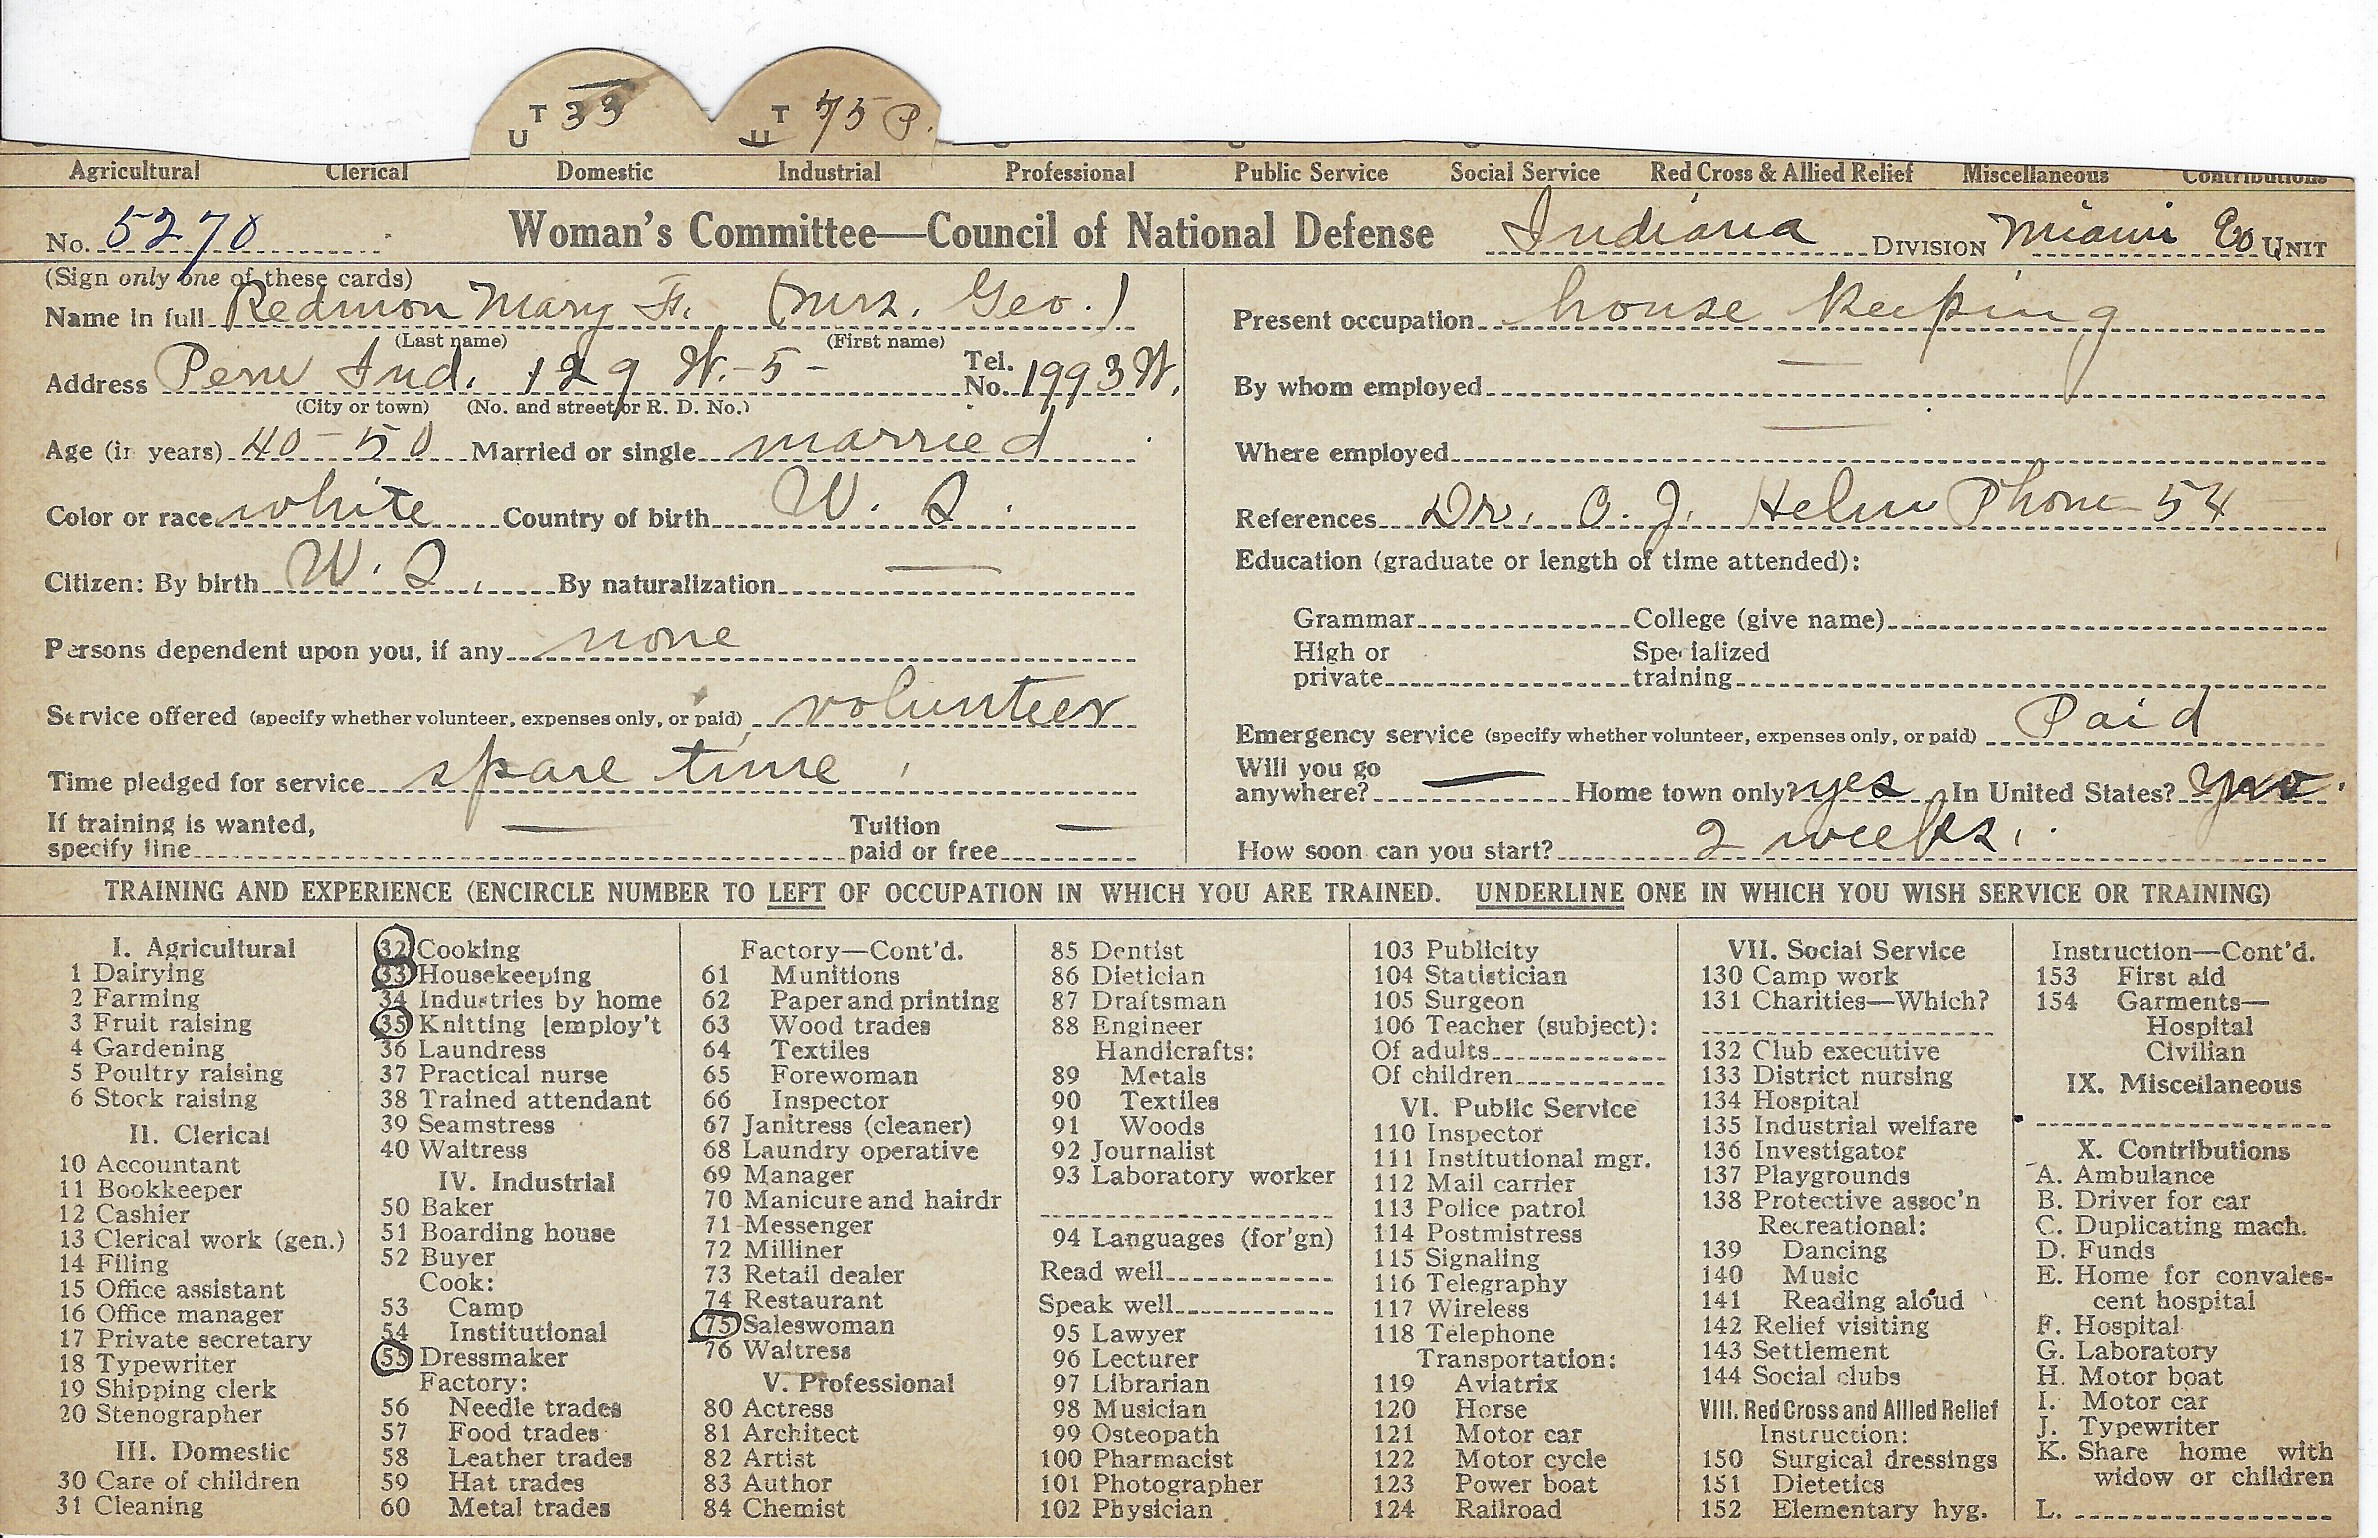 T 33 T 75 P.
U U
Agricultural Clerical Domestic Industrial Professional Public Service Social Service Red Cross & Allied Relief Miscellaneous Contributions
No. 5270 Woman's Committee—Council of National Defense Indiana DIVISION Miami Co UNIT
(Sign only one of these cards)
Name in full Redmon Mary F. (Mrs. Geo.)
(Last name) (First name)
Address Peru Ind. 129 W.-5- Tel. No. 1993 W.
(City or town) (No. and street or R. D. No.)
Age (in years) 40-50 Married or single married
Color or race white Country of birth U. S.
Citizen: By birth U. S. By naturalization —
Persons dependent upon you, if any none
Service offered (specify whether volunteer, expenses only, or paid) volunteer
Time pledged for service spare time
If training is wanted,
specify line — Tuition paid or free —
Present occupation house keeping
By whom employed —
Where employed —
References Dr. O. J. Helm Phone 54
Education (graduate or length of time attended):
Grammar College (give name)
High or private Specialized training
Emergency service (specify whether volunteer, expenses only, or paid) Paid
Will you go
anywhere? — Home town only? yes In United States?
How soon can you start? 2 weeks.
TRAINING AND EXPERIENCE (ENCIRCLE NUMBER TO LEFT OF OCCUPATION IN WHICH YOU ARE TRAINED. UNDERLINE ONE IN WHICH YOU WISH SERVICE OR TRAINING)
I. Agricultural
1 Dairying
2 Farming
3 Fruit raising
4 Gardening
5 Poultry raising
6 Stock raising
II. Clerical
10 Accountant
11 Bookkeeper
12 Cashier
13 Clerical work (gen.)
14 Filing
15 Office assistant
16 Office manager
17 Private secretary
18 Typewriter
19 Shipping clerk
20 Stenographer
III. Domestic
30 Care of children
31 Cleaning
32 Cooking
33 Housekeeping
34 Industries by home
35 Knitting [employ't
36 Laundress
37 Practical nurse
38 Trained attendant
39 Seamstress
40 Waitress
IV. Industrial
50 Baker
51 Boarding house
52 Buyer
Cook:
53 Camp
54 Institutional
55 Dressmaker
Factory:
56 Needle trades
57 Food trades
58 Leather trades
59 Hat trades
60 Metal trades
Factory—Cont'd.
61 Munitions
62 Paper and printing
63 Wood trades
64 Textiles
65 Forewoman
66 Inspector
67 Janitress (cleaner)
68 Laundry operative
69 Manager
70 Manicure and hairdr
71 Messenger
72 Milliner
73 Retail dealer
74 Restaurant
75 Saleswoman
76 Waitress
V. Professional
80 Actress
81 Architect
82 Artist
83 Author
84 Chemist
85 Dentist
86 Dietician
87 Draftsman
88 Engineer
Handicrafts:
89 Metals
90 Textiles
91 Woods
92 Journalist
93 Laboratory worker
94 Languages (for'gn)
Read well
Speak well
95 Lawyer
96 Lecturer
97 Librarian
98 Musician
99 Osteopath
100 Pharmacist
101 Photographer
102 Physician
103 Publicity
104 Statistician
105 Surgeon
106 Teacher (subject):
Of adults
Of children
VI. Public Service
110 Inspector
111 Institutional mgr.
112 Mail carrier
113 Police patrol
114 Postmistress
115 Signaling
116 Telegraphy
117 Wireless
118 Telephone
Transportation:
119 Aviatrix
120 Horse
121 Motor car
122 Motor cycle
123 Power boat
124 Railroad
VII. Social Service
130 Camp work
131 Charities—Which?
132 Club executive
133 District nursing
134 Hospital
135 Industrial welfare
136 Investigator
137 Playgrounds
138 Protective assoc'n
Recreational:
139 Dancing
140 Music
141 Reading aloud
142 Relief visiting
143 Settlement
144 Social clubs
VIII. Red Cross and Allied Relief
Instruction:
150 Surgical dressings
151 Dietetics
152 Elementary hyg.
Instruction—Cont'd.
153 First aid
154 Garments—
Hospital
Civilian
IX. Miscellaneous
X. Contributions
A. Ambulance
B. Driver for car
C. Duplicating mach.
D. Funds
E. Home for convales-
cent hospital
F. Hospital
G. Laboratory
H. Motor boat
I. Motor car
J. Typewriter
K. Share home with
widow or children
L.